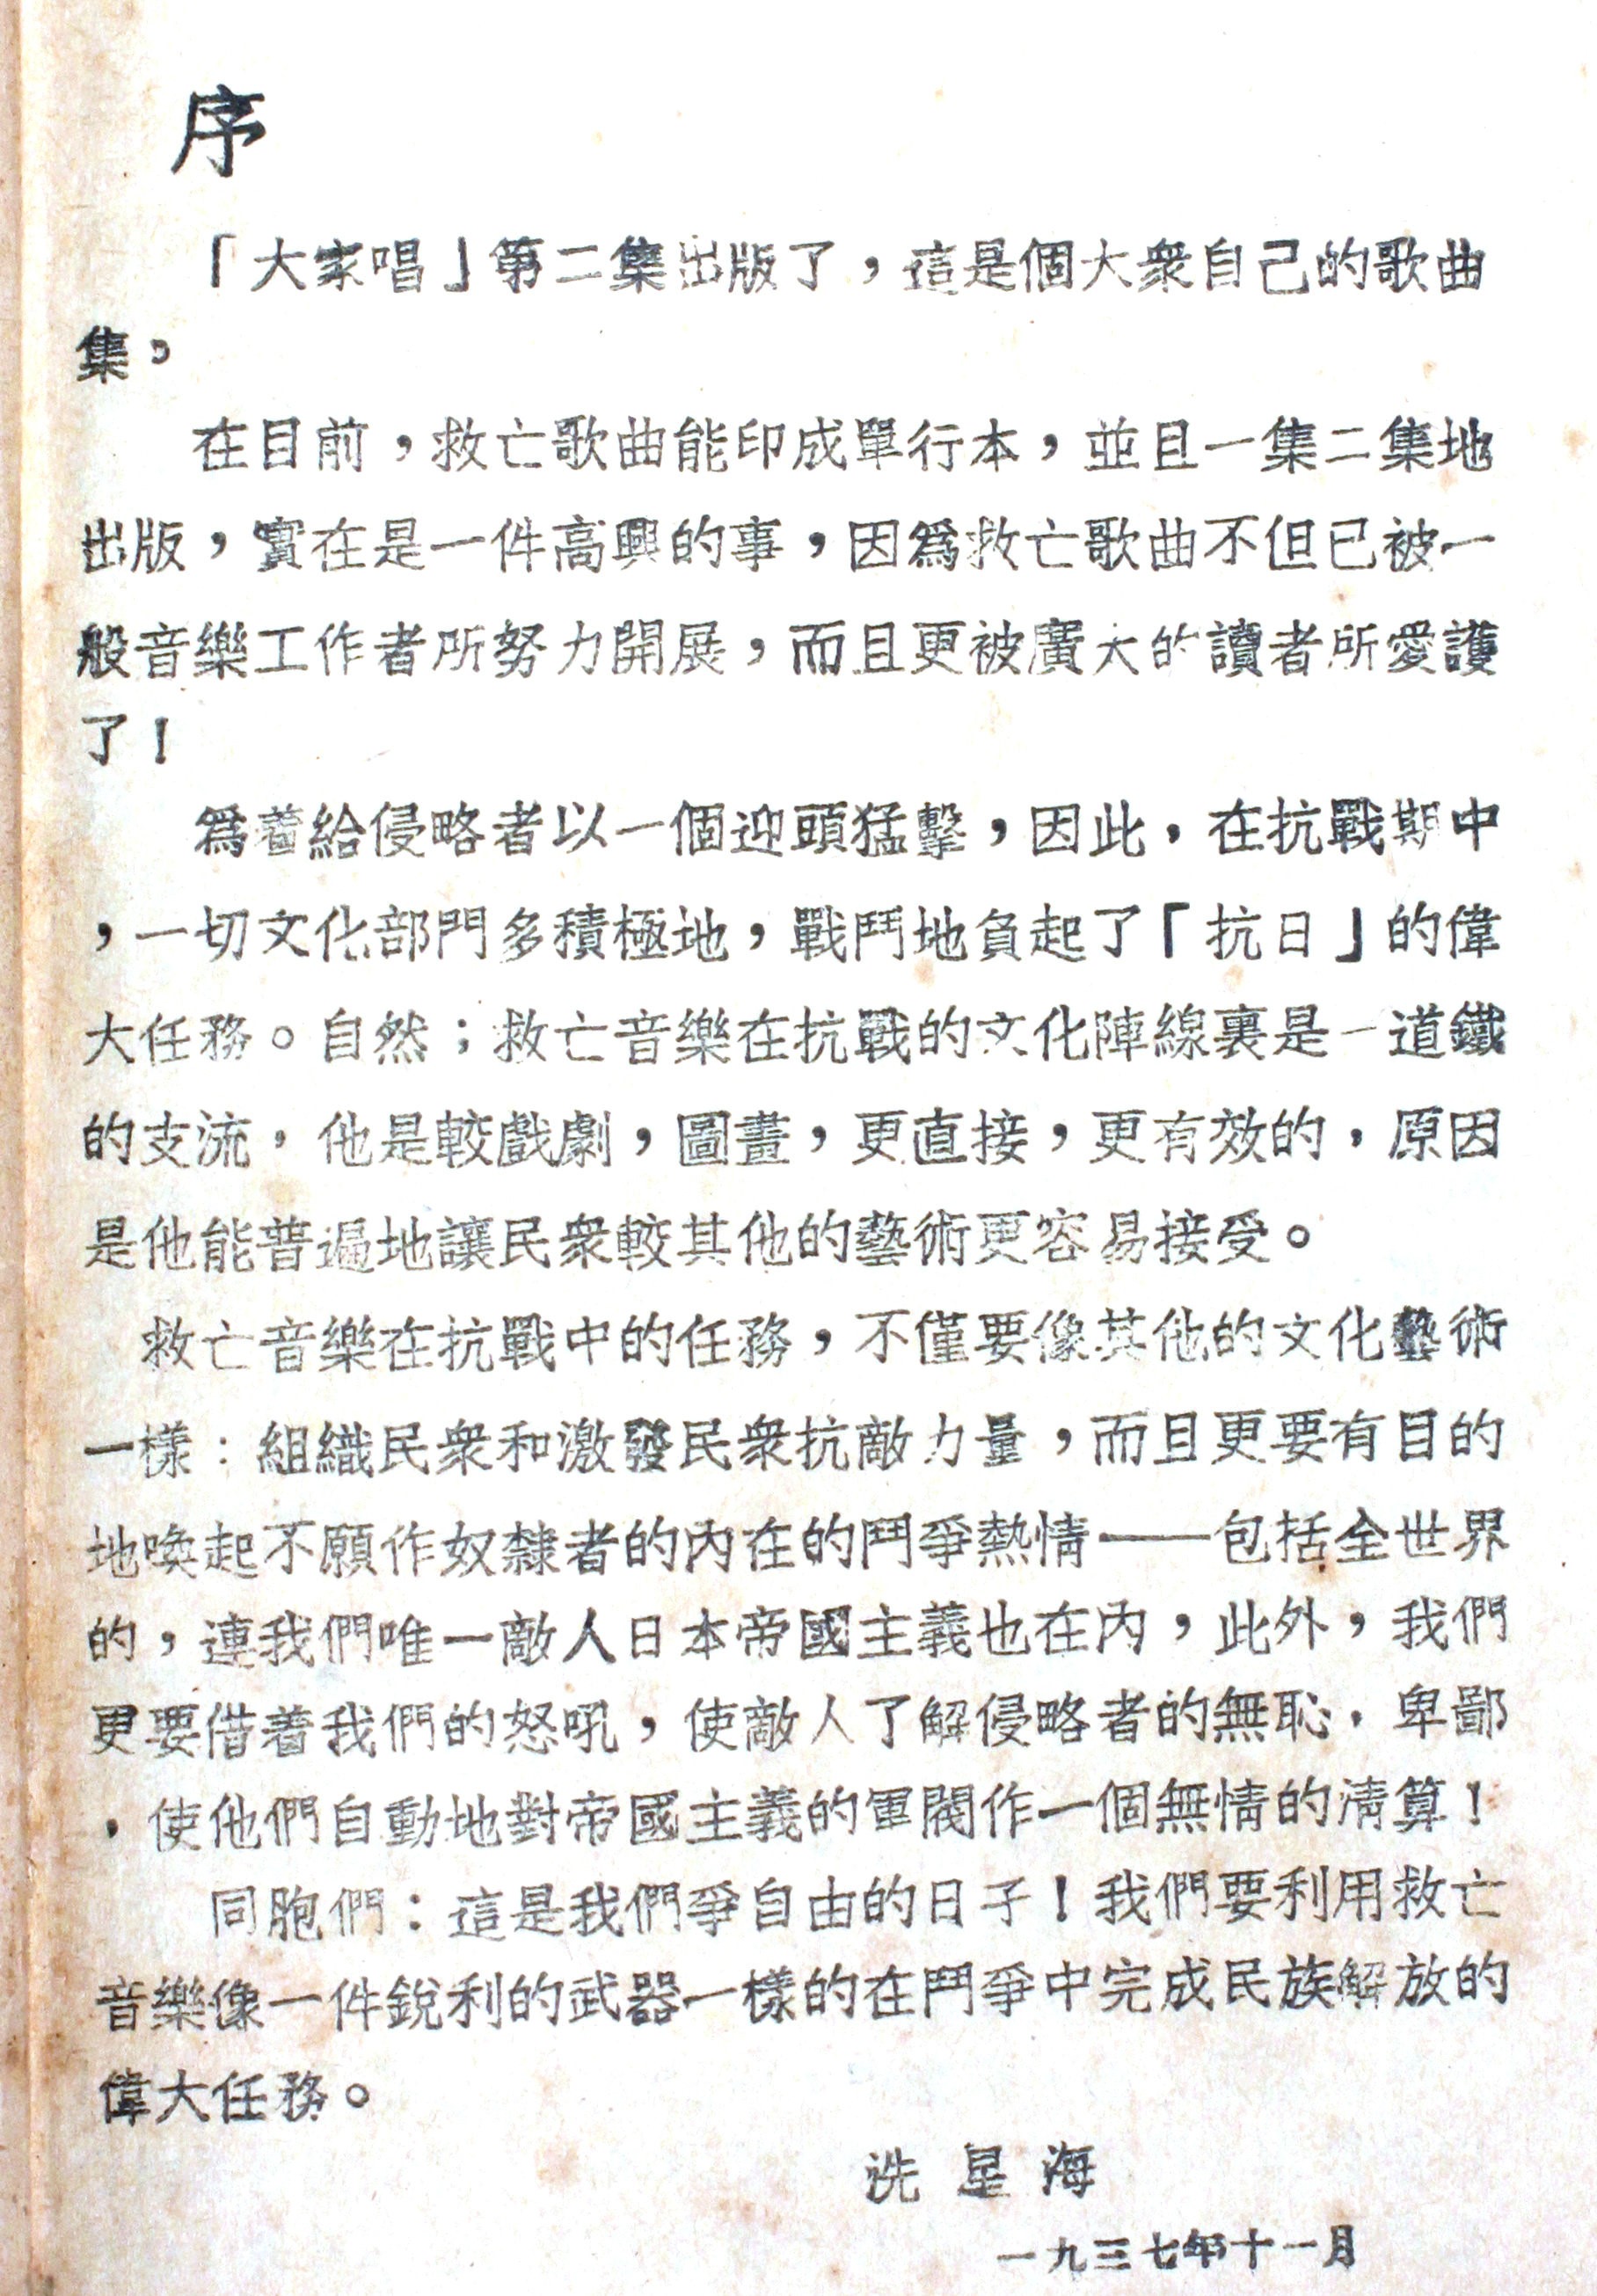 序
「大家唱」第二集出版了，這是個大衆自己的歌曲
集，
在目前，救亡歌曲能印成單行本，並且一集二集地
出版，實在是一件高興的事，因爲救亡歌曲不但已被一
般音樂工作者所努力開展，而且更被廣大的讀者所愛護
了！
爲着給侵略者以一個迎頭猛擊，因此，在抗戰期中
，一切文化部門多積極地，戰鬥地負起了「抗日」的偉
大任務。自然；救亡音樂在抗戰的文化陣線裏是一道鐵
的支流，他是較戲劇，圖畫，更直接，更有效的，原因
是他能普遍地讓民衆較其他的藝術更容易接受。
救亡音樂在抗戰中的任務，不僅要像其他的文化藝術
一樣：組織民衆和激發民衆抗敵力量，而且更要有目的
地喚起不願作奴隸者的內在的鬥爭熱情——包括全世界
的，連我們唯一敵人日本帝國主義也在內，此外，我們
更要借着我們的怒吼，使敵人了解侵略者的無恥，卑鄙
，使他們自動地對帝國主義的軍閥作一個無情的淸算！
同胞們：這是我們爭自由的日子！我們要利用救亡
音樂像一件銳利的武器一樣的在鬥爭中完成民族解放的
偉大任務。
冼星海
一九三七年十一月